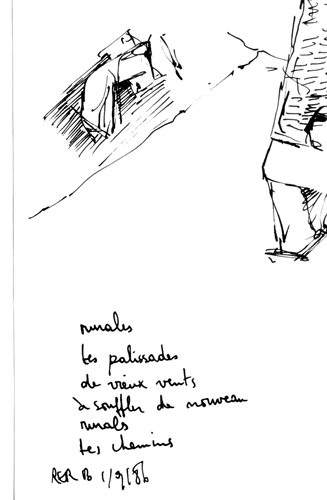 rurales
tes palissades
de vieux vents
à souffler de nouveau
rurals
tes chemins
RER B 1/9/86